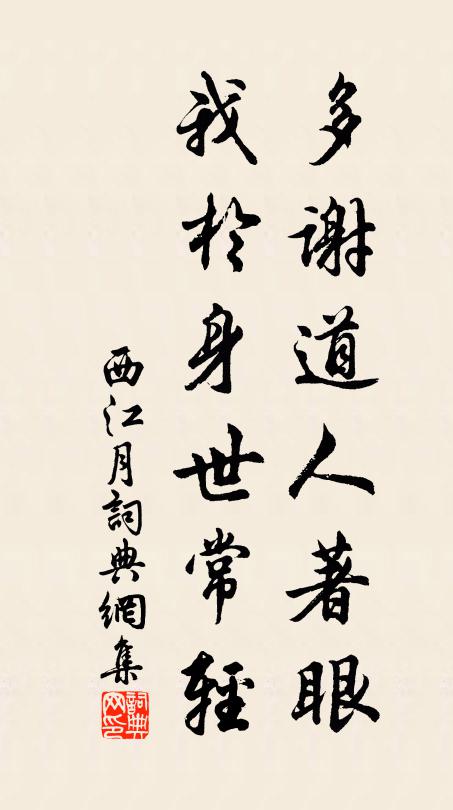 多謝道人著眼
我於身世常輕
西江月詞典網集
詞典网印